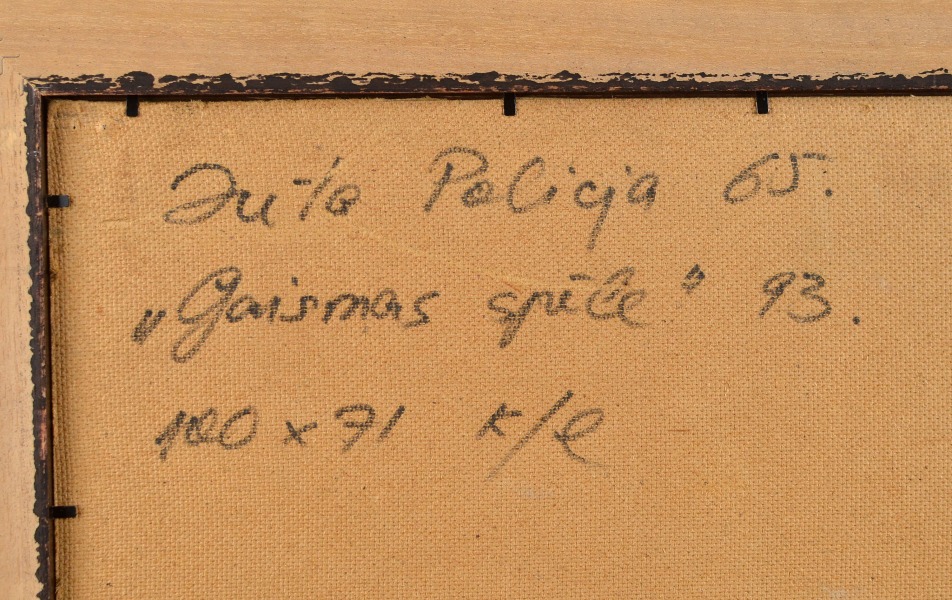 Juta Policja 65.
„Gaismas spēle" 93.
100 x 71 k/e